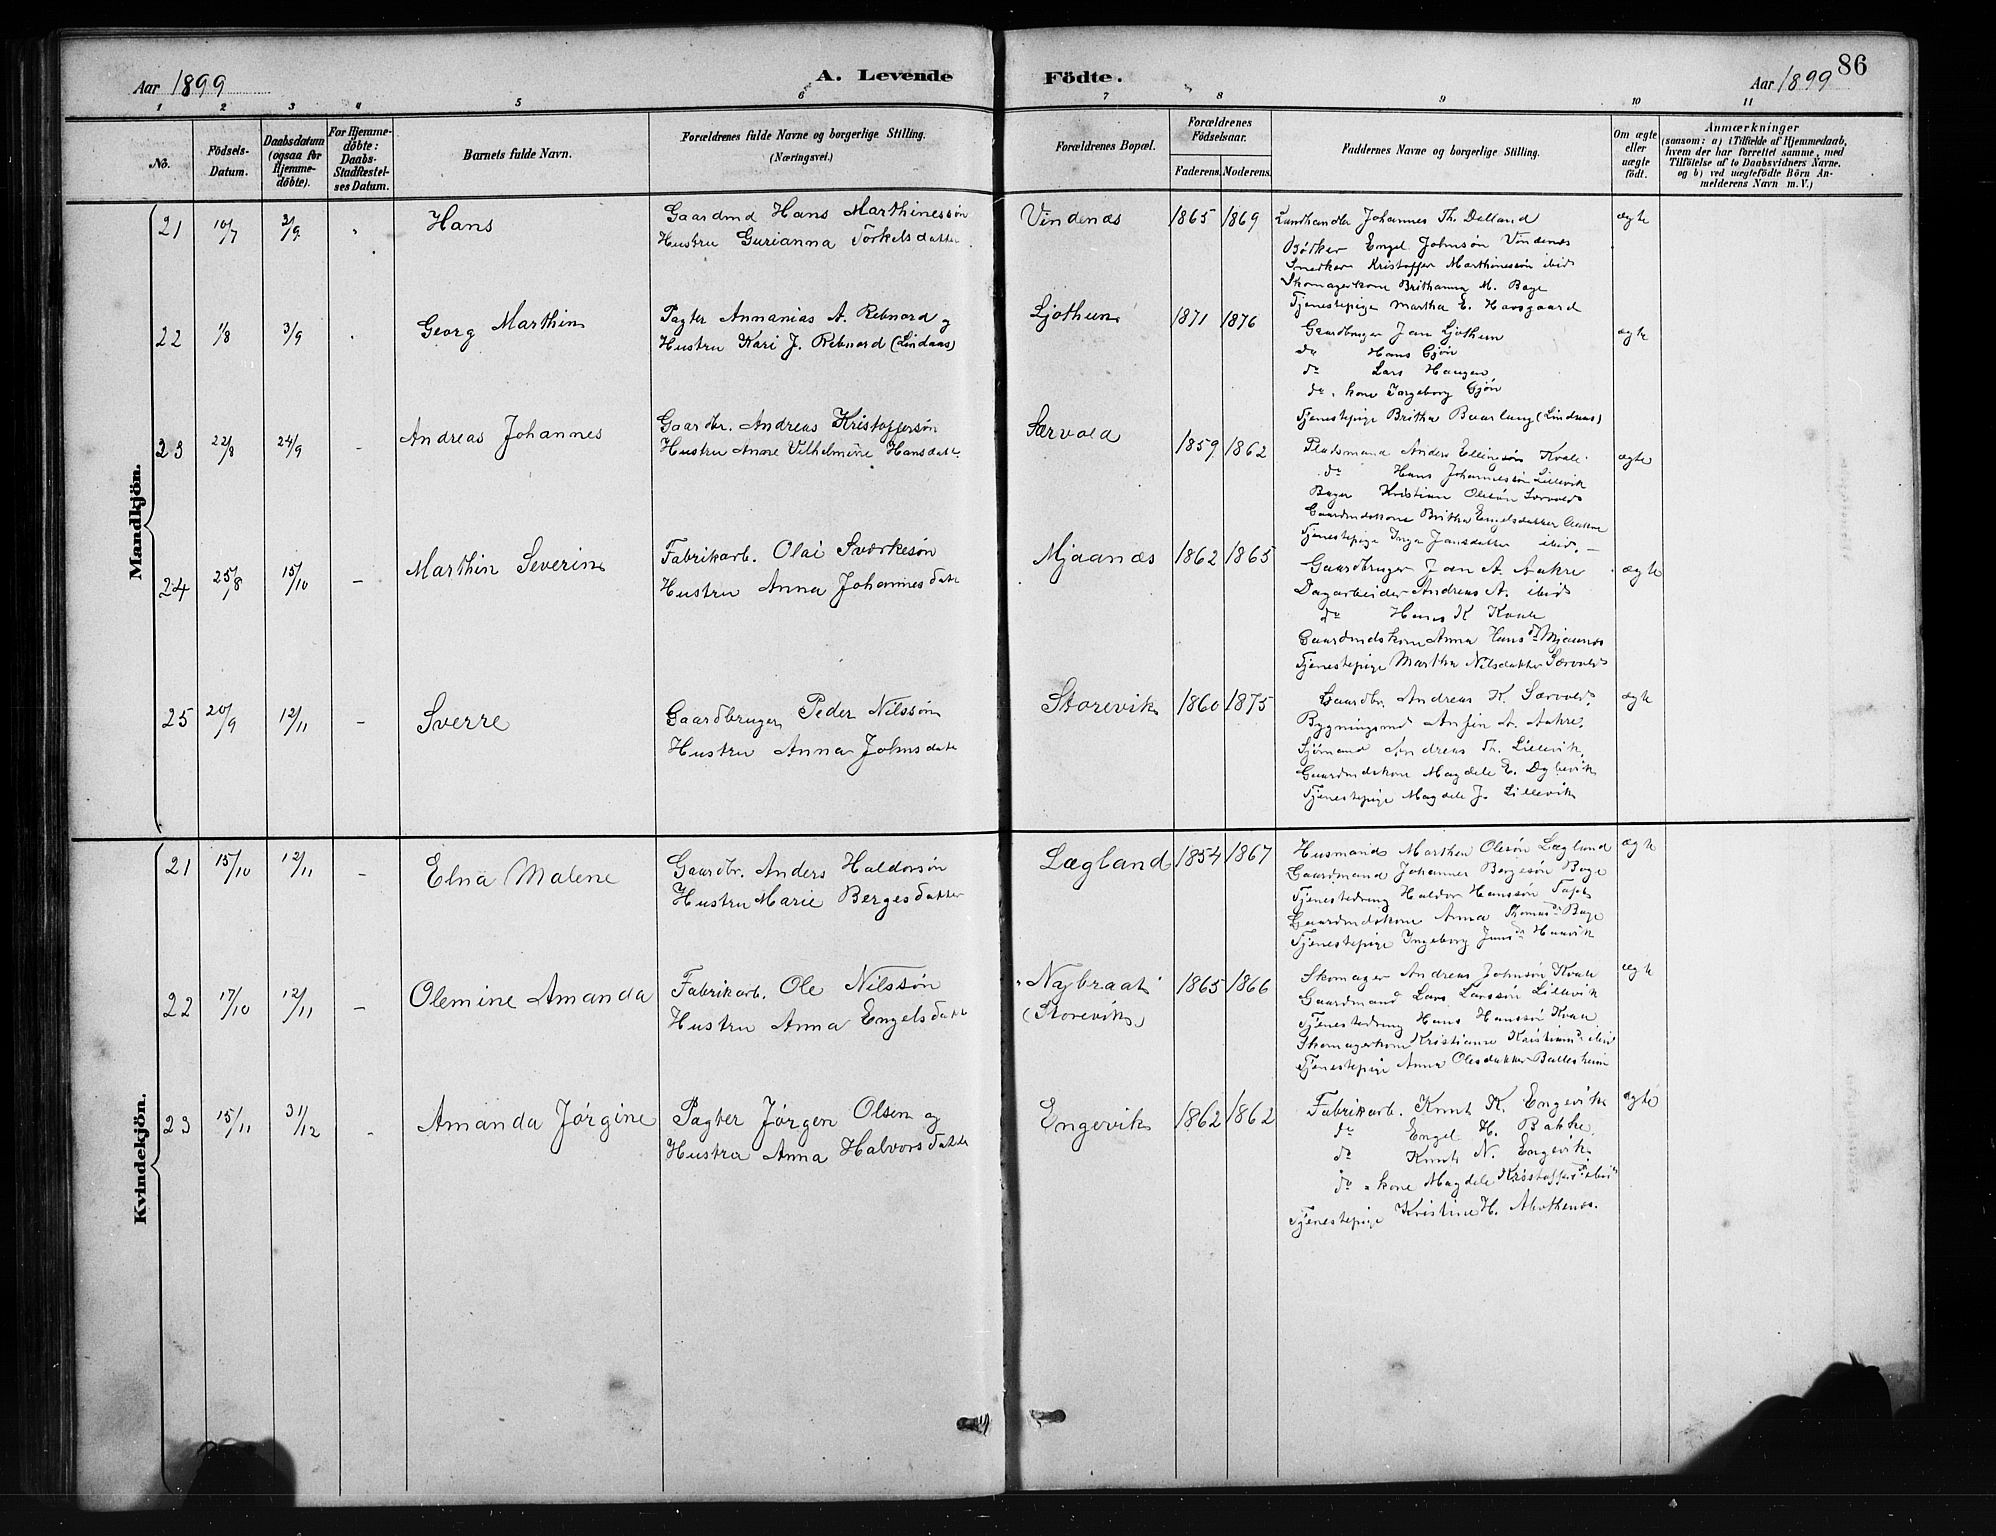 Aar 1899
A. Levende Födte.
Aar 1899
86
1 2 3 4 5 6 7 8 9 10 11
No.
Födsels-
Datum.
Daabsdatum
(ogsaa for
Hjemme-
döbte).
For Hjemme-
döbte:
Daabs-
Stadfæstel-
ses Datum.
Barnets fulde Navn.
Forældrenes fulde Navne og borgerlige Stilling.
(Næringsvei.)
Forældrenes Bopæl.
Forældrenes
Födselsaar.
Faderens. Moderens.
Faddernes Navne og borgerlige Stilling.
Om ægte
eller
uægte
födt.
Anmærkninger
(saasom: a) i Tilfælde af Hjemmedaab,
hvem der har forrettet samme, med
Tilföielse af to Daabsvidners Navne.
og b) ved uægtefödte Börn An-
melderens Navn m. V.)
Mandkjön.
21 10/7 3/9 Hans
Gaardmd Hans Marthinessön
Hustru Gurianna Torkelsdatter
Vindenæs 1865 1869
Landhandler Johannes Th. Delland
Bödker Engel Johnsön Vindenæs
Snedker Kristoffer Marthinessön ibid
Skomagerkone Brithanna M. Bage
Tjenestepige Martha E. Havsgaard
ægte
22 1/8 3/9 Georg Marthin
Pagter Annanias A. Rebnord og
Hustru Kari J. Rebnord (Lindaas)
Ljothun 1871 1876
Gaardbruger Jan Ljothun
do Hans Gjön
do Lars Haugen
do kone Ingeborg Gjön
Tjenestepige Britha Baarlaug (Lindaas)
ægte
23 22/8 24/9 Andreas Johannes
Gaardbr. Andreas Kristoffersön
Hustru Anne Vilhelmine Hansdatt.
Særvold 1859 1862
Pladsmand Anders Ellingsön Kvale
do Hans Johannessön Lillevik
Bager Kristian Olesön Særvold
Gaardmdskone Britha Engelsdatter Aakre
Tjenestepige Inga Jansdatter ibid.
ægte
24 25/8 15/10 Marthin Severin
Fabrikarb. Olai Sværkesön
Hustru Anna Johannesdatt
Mjaanæs 1862 1865
Gaardbruger Jan A. Aakre
Dagarbeider Andreas A. ibid
do Hans K Kvale
Gaardmdskone Anna Hansdr Mjaanæs
Tjenestepige Martha Nilsdatter Særvold
ægte
25 20/9 12/11 Sverre
Gaardbruger Peder Nilssön
Hustru Anna Johnsdatt
Storevik 1860 1875
Gaardbr. Andreas K. Særvold
Bygningsmd Anfin A. Aakre
Sjömand Andreas Th. Lillevik
Gaardmdskone Magdele E. Dybevik
Tjenestepige Magdele J. Lillevik
ægte
Kvindekjön.
21 15/10 12/11 Elna Malene
Gaardbr. Anders Haldorsön
Hustru Marie Bergesdatter
Lægland 1854 1867
Husmand Marthen Olesön Lægland
Gaardmand Johannes Bergesön Bage
Tjenestedreng Haldor Hanssön
Gaardmdskone Anna Thomasdr Bage
Tjenestepige Ingeborg Jansdr Haavik
ægte
22 17/10 12/11 Olemine Amanda
Fabrikarb. Ole Nilssön
Hustru Anna Engelsdatt
"Nybraat"
(Storevik) 1865 1866
Skomager Andreas Johnsön Kvale
Gaardmand Lars Larssön Lillevik
Tjenestedreng Hans Hanssön Kvale
Skomagerkone Kristianne Kristiansdr ibid
Tjenestepige Anna Olesdatter Ballesheim
ægte
23 15/11 31/12 Amanda Jörgine
Pagter Jörgen Olsen og
Hustru Anna Halvorsdatt
Engevik 1862 1862
Fabrikarb. Knut K. Engevik
do Engel H. Bakke
do Knut N. Engevik
do kone Magdele Kristoffersdr ibid
Tjenestepige Kristine H. Mothenes.
ægte